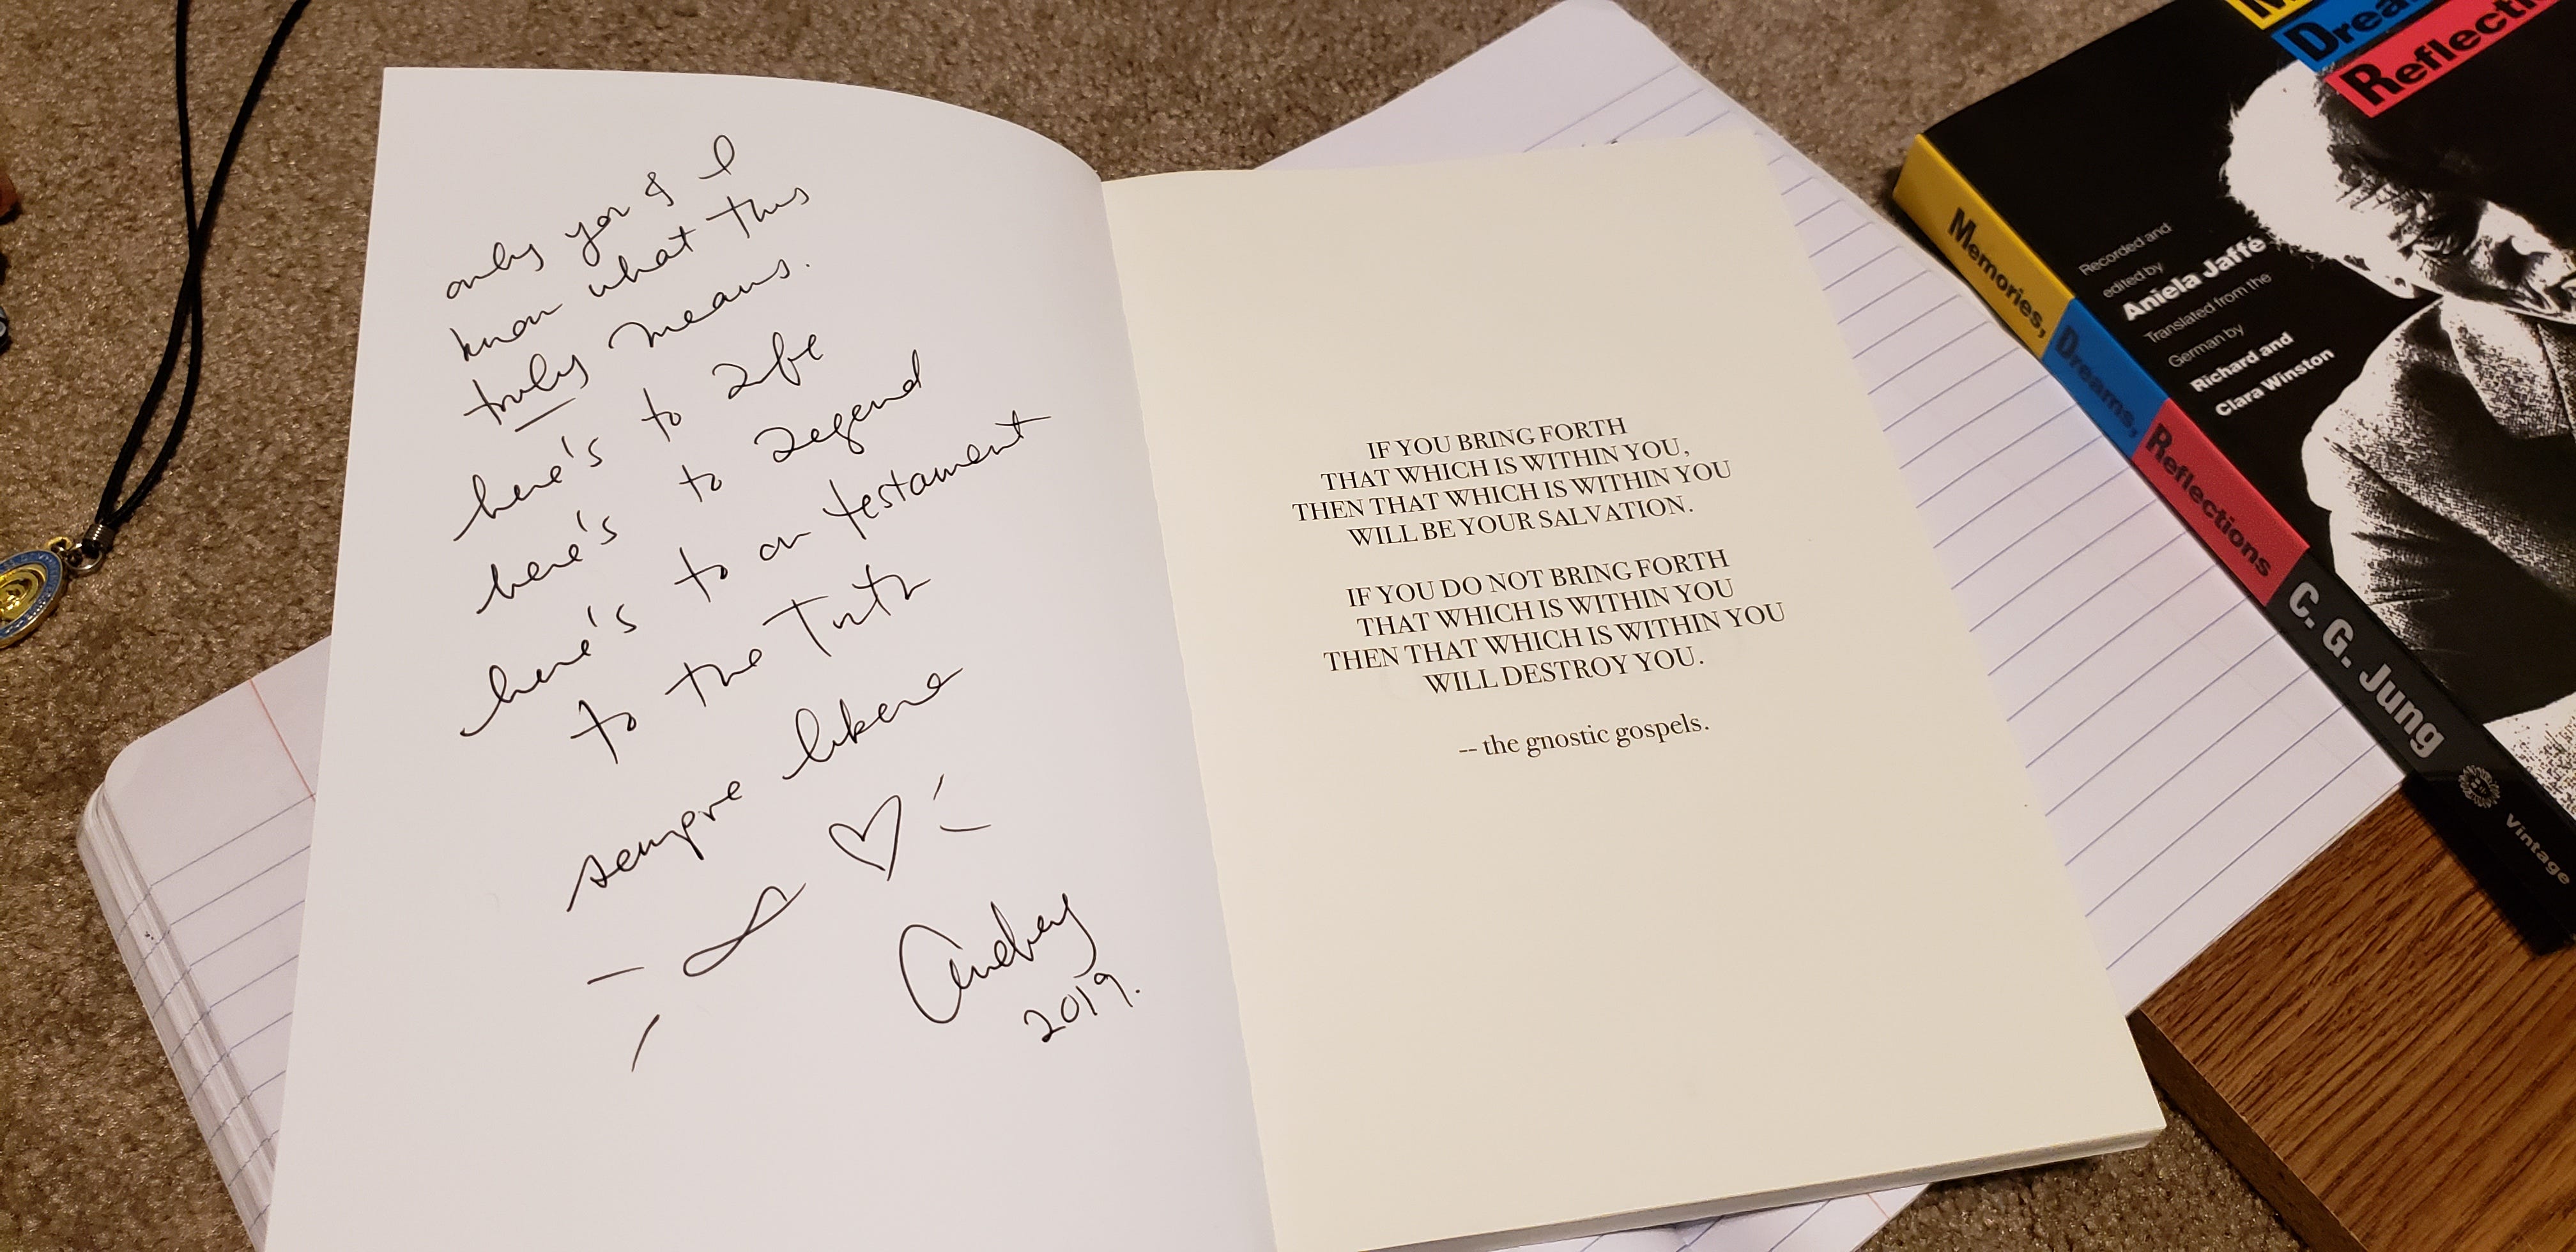 only you & I
know what this
truly means.
here's to Life
here's to Legend
here's to our testament
to the Truth
sempre libera
2019.
IF YOU BRING FORTH
THAT WHICH IS WITHIN YOU,
THEN THAT WHICH IS WITHIN YOU
WILL BE YOUR SALVATION.
IF YOU DO NOT BRING FORTH
THAT WHICH IS WITHIN YOU
THEN THAT WHICH IS WITHIN YOU
WILL DESTROY YOU.
-- the gnostic gospels.
Reflecti
Recorded and
edited by
Aniela Jaffé
Translated from the
German by
Richard and
Clara Winston
Memories,
Dreams,
Reflections
C. G. Jung
Vintage